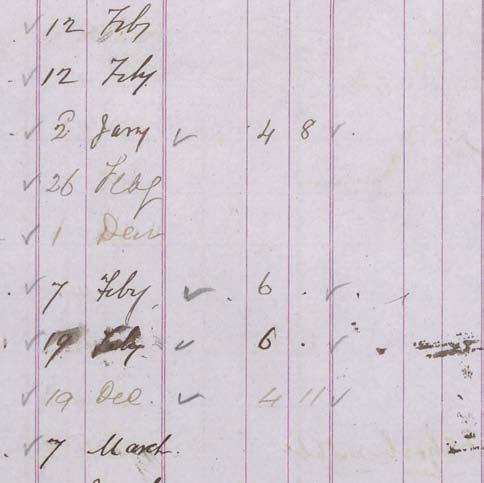 ✓ 12 Feby
✓ 12 Feby
✓ 2 Jany ✓ 4 8 ✓
✓ 26
✓ 1
✓ 7 Feby ✓ 6 . ✓
✓ 19 Feby ✓ 6 . ✓
✓ 19 Dec. ✓ 4 11 ✓
✓ 7 March.